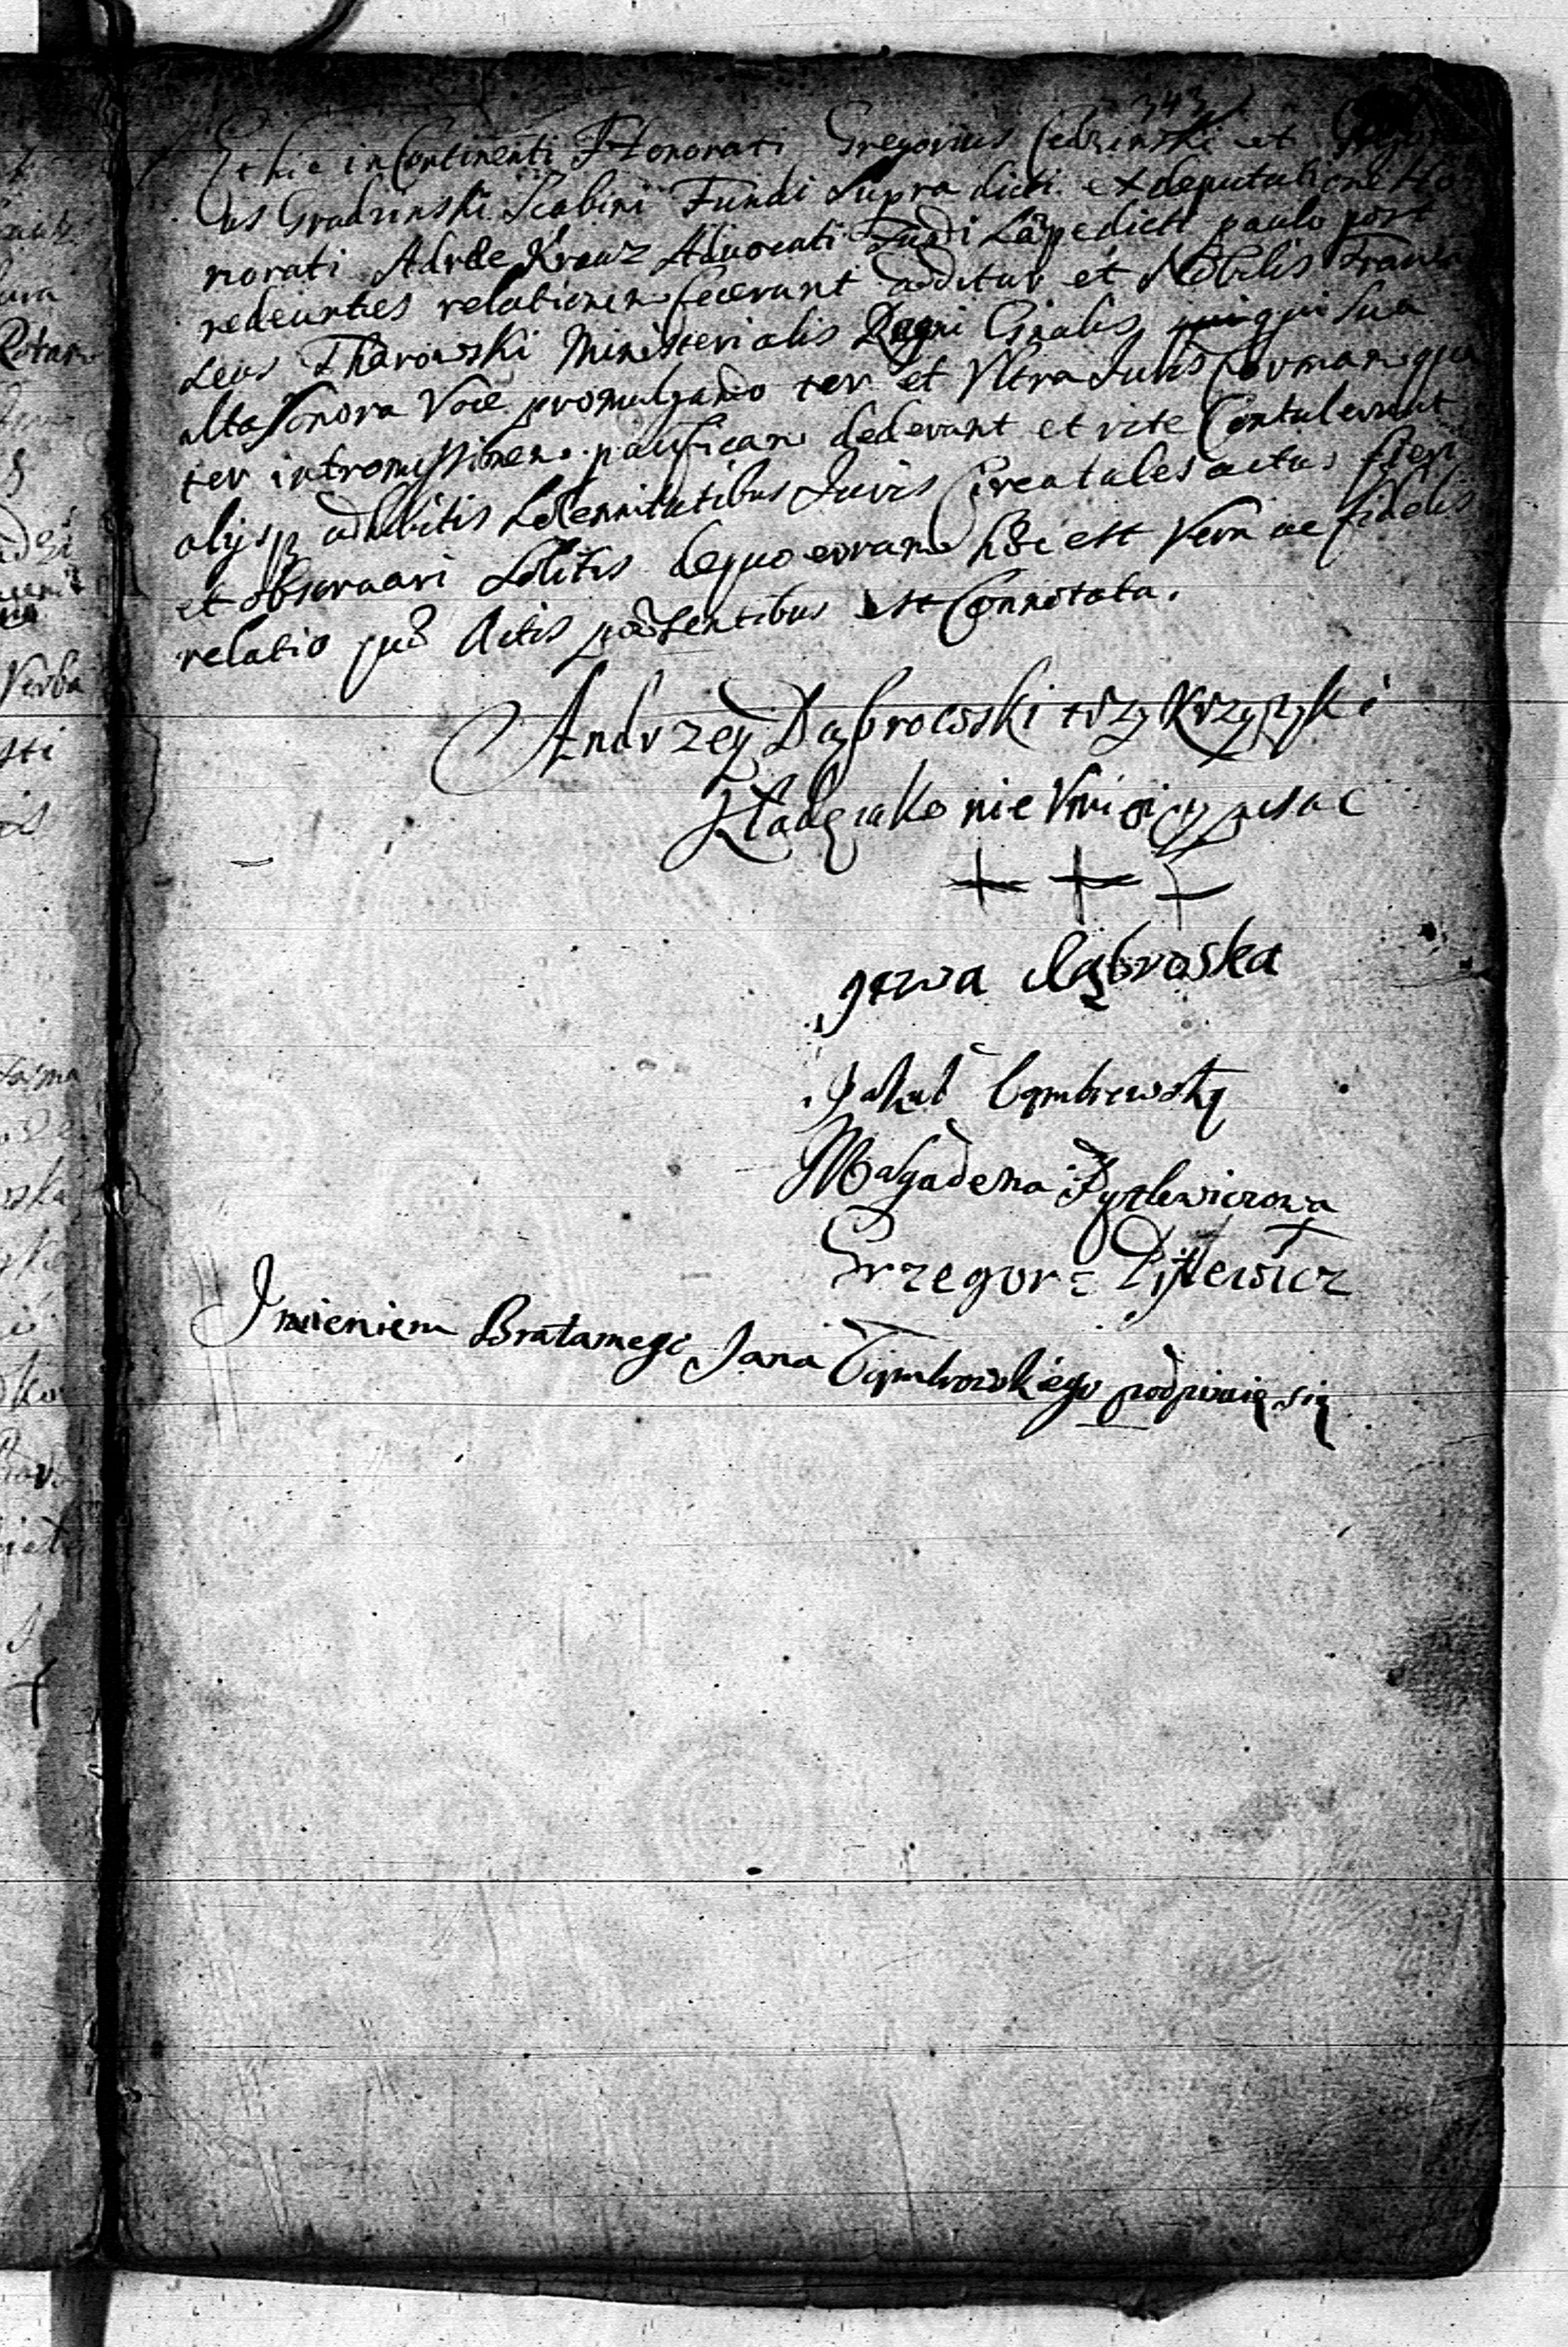 343
Et hic in Continenti Honorati Gregorius Cedzinski et
us Gradzinski Scabini Fundi Supra dicti ex deputatione Ho
norati Adree Krauz Advocati Fundi paulo post
redeuntes relationem fecerunt additur et Nobilis Franci
scus Tharowski Ministerialis Regni Gnalis qui sua
alta sonora Voce promulgando ter et Ultra Juris formam qua
ter intromissionem pacificam dederunt et rite Contulerunt
alijsq adhibitis Solennitatibus Juris Circa tales actus fieri
et observari Solitis de quo coram hoc est Vera ac fidelis
relatio quæ Actis præsentibus est Connotata.
Andrzey Dąbrowski trzy Krzyzyki
Kładę iako nie Umieiący pisac
+ + +
jewa dąbroska
Jakub Dąmbrewsky
Magadena Pytlewiczowa
Grzegorz Pijtlewicz
Imieniem Brata mego Jana Dąmbrowskiego podpisuię się
Rotar
Verba
sti